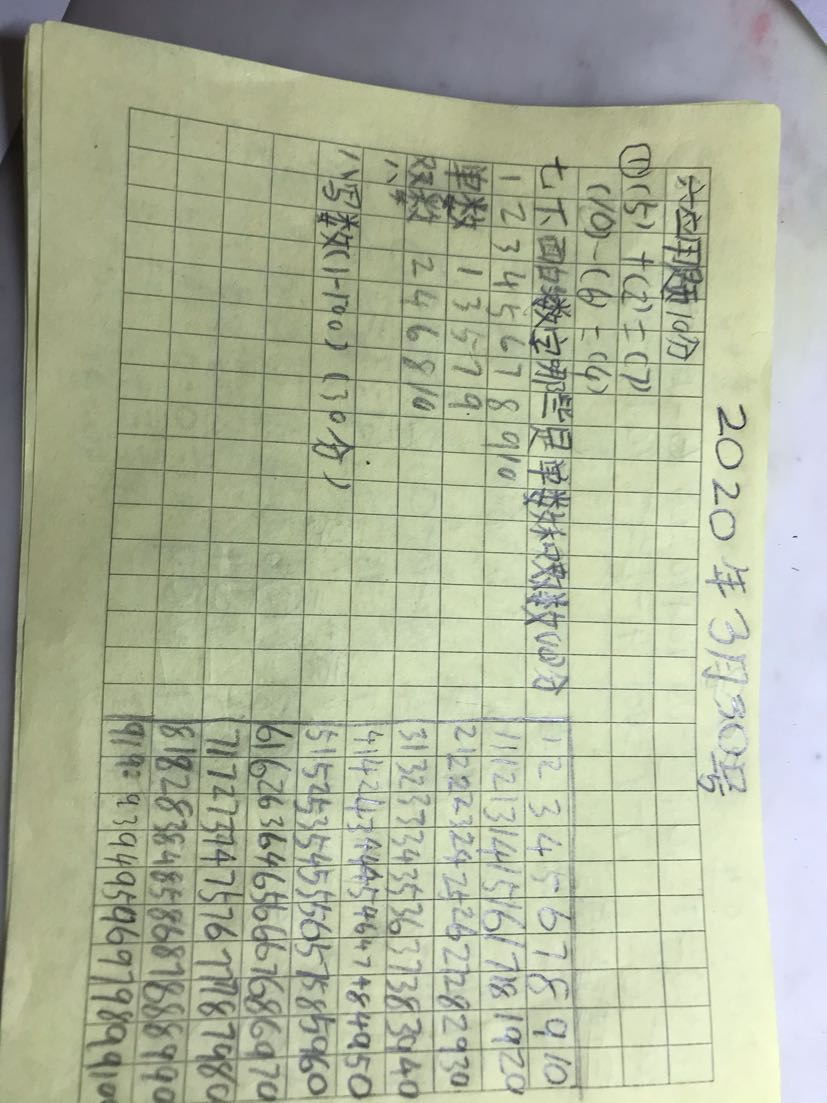 2020年3月30号
六应用题10分
①(5)+(2)=(7)
(10)-(6)=(4)
七下面数字哪些是单数和双数(10分
1 2 3 4 5 6 7 8 9 10
单数 1 3 5 7 9.
双数 2 4 6 8 10
八写数(1-100)(30分)
1 2 3 4 5 6 7 8 9 10
11 12 13 14 15 16 17 18 19 20
21 22 23 24 25 26 27 28 29 30
31 32 33 34 35 36 37 38 39 40
41 42 43 44 45 46 47 48 49 50
51 52 53 54 55 56 57 58 59 60
61 62 63 64 65 66 67 68 69 70
71 72 73 74 75 76 77 78 79 80
81 82 83 84 85 86 87 88 89 90
91 92 93 94 95 96 97 98 99 100